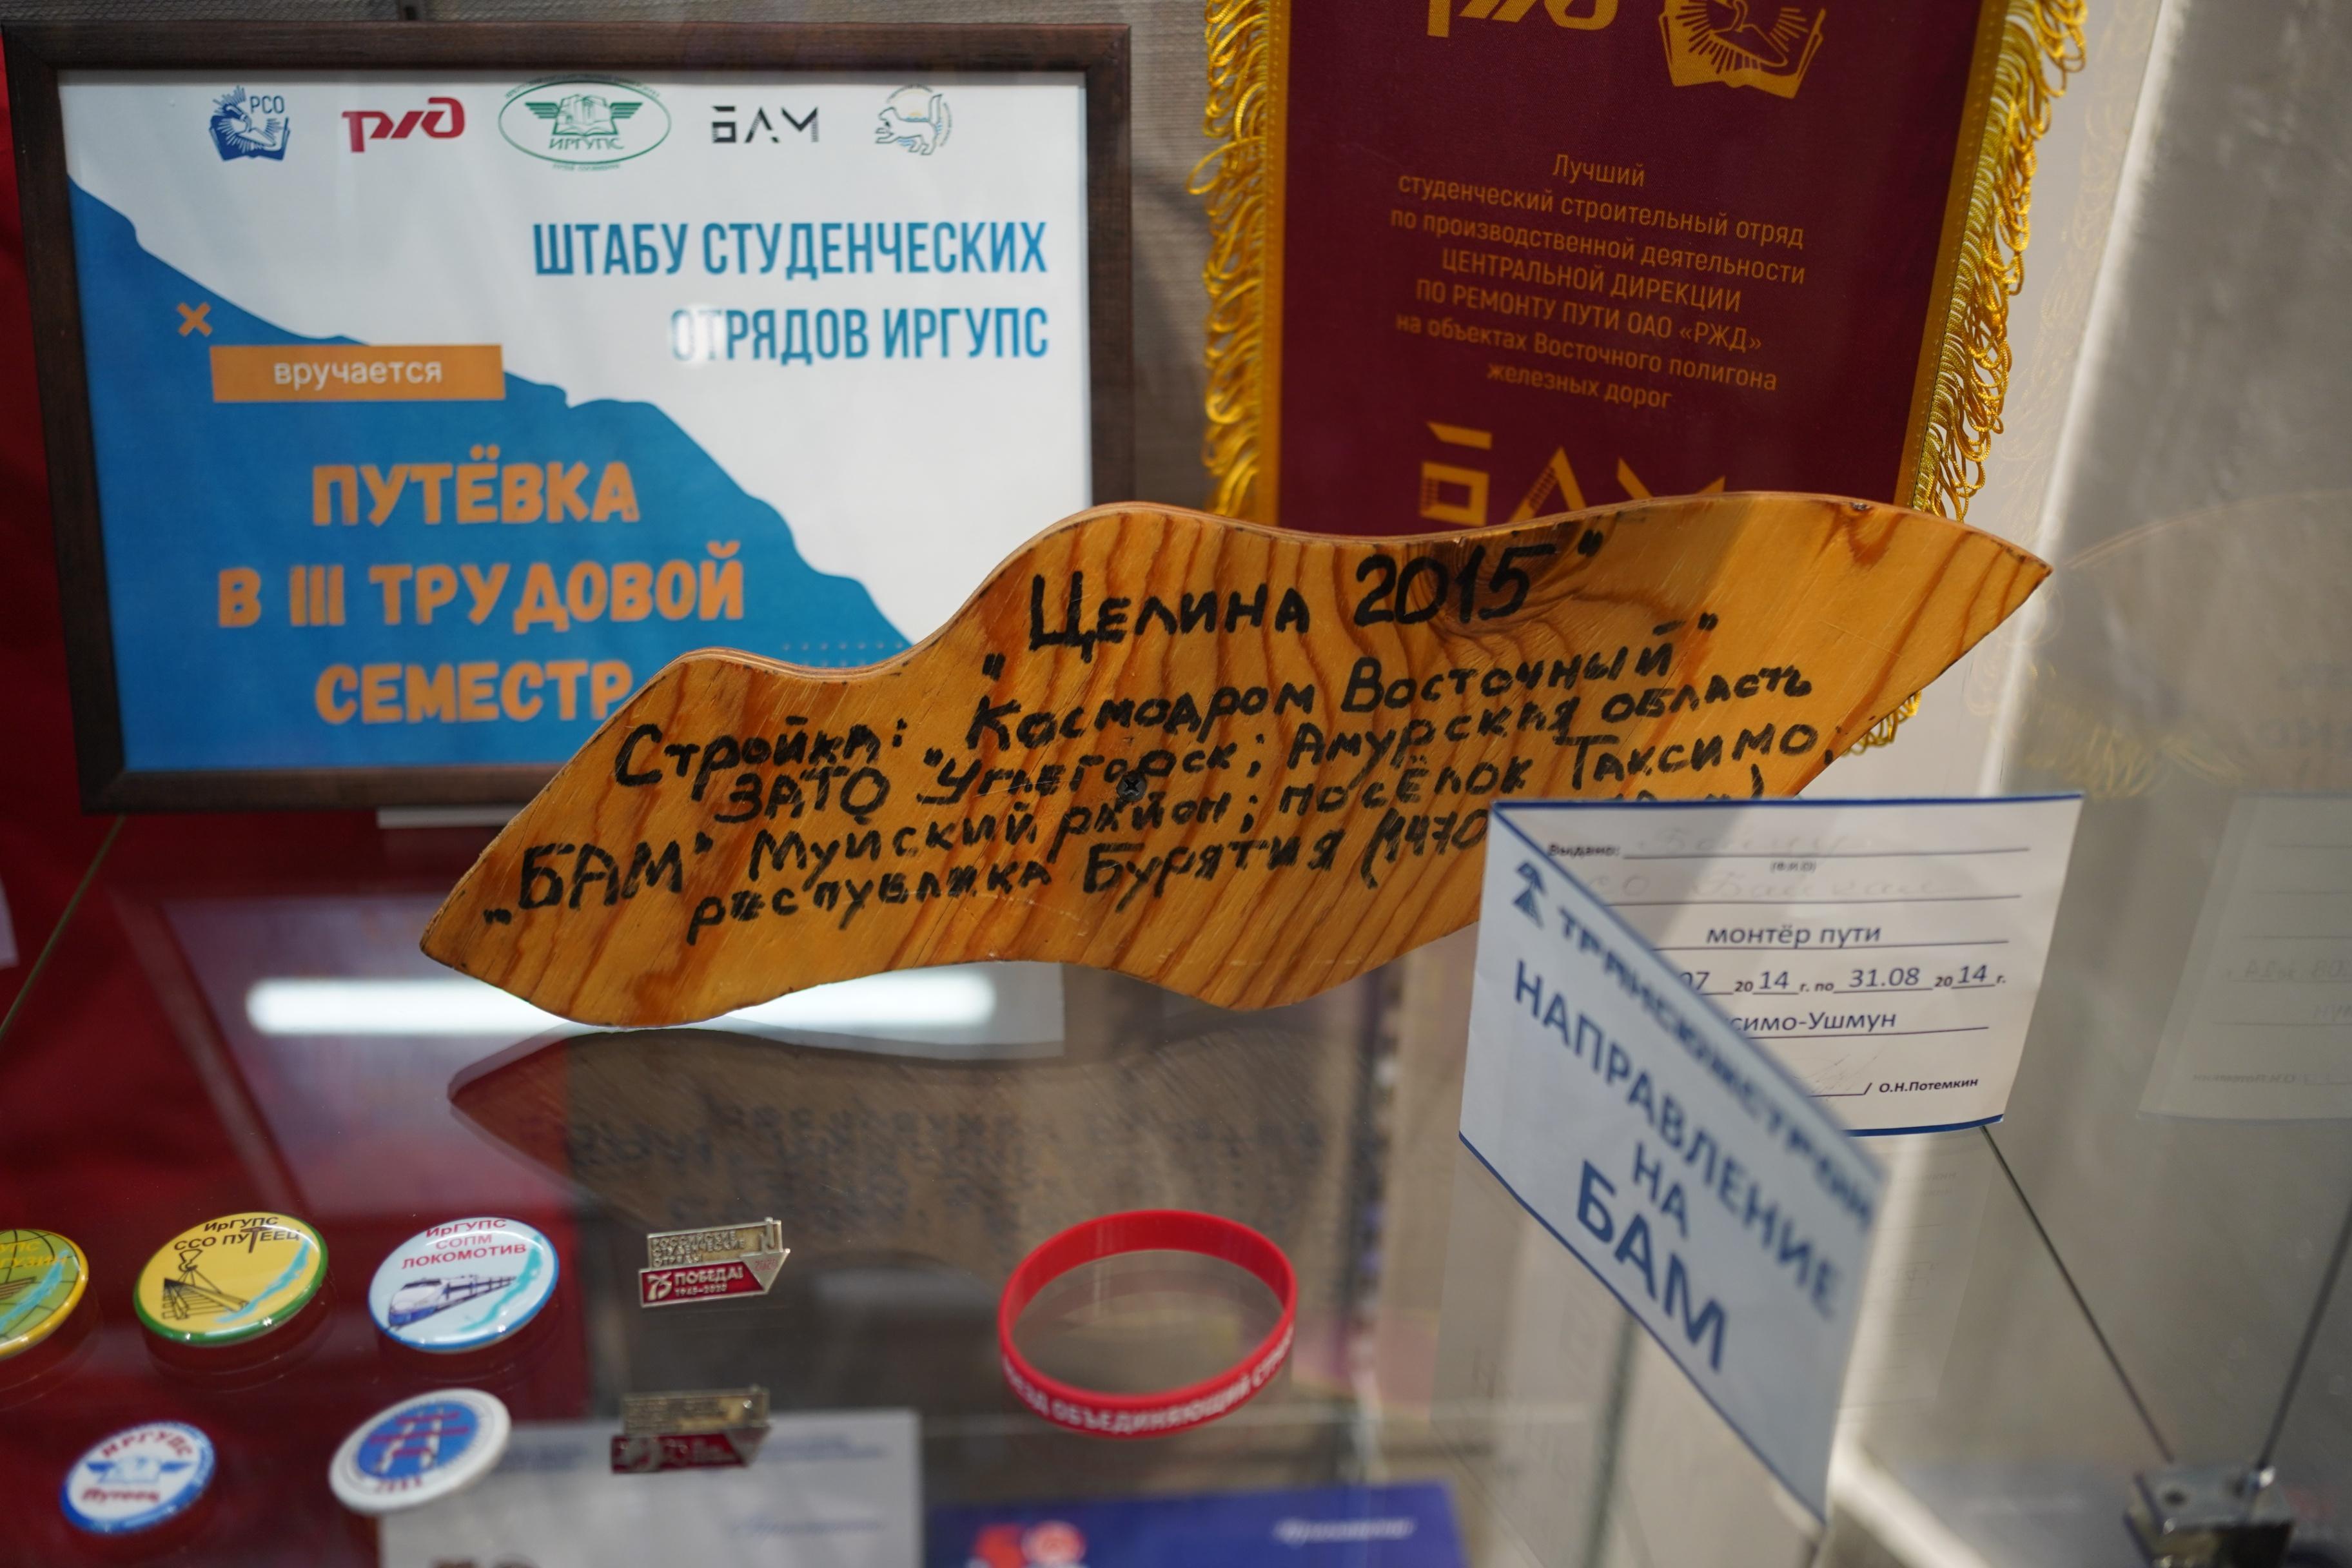 РСО
РЖД
ИРГУПС
БАМ
ШТАБУ СТУДЕНЧЕСКИХ
ОТРЯДОВ ИРГУПС
вручается
ПУТЁВКА
В III ТРУДОВОЙ
СЕМЕСТР
РЖД
Лучший
студенческий строительный отряд
по производственной деятельности
ЦЕНТРАЛЬНОЙ ДИРЕКЦИИ
ПО РЕМОНТУ ПУТИ ОАО «РЖД»
на объектах Восточного полигона
железных дорог
БАМ
Целина 2015"
Стройка: "Космодром Восточный"
ЗАТО "Углегорск; Амурская область
"БАМ" Муйский район; посёлок Таксимо;
республика Бурятия (1470
Выдано:
(Ф.И.О)
монтёр пути
07 2014 г. по 31.08 2014 г.
симо-Ушмун
/ О.Н.Потемкин
НАПРАВЛЕНИЕ
НА
БАМ
ИрГУПС
ССО ПУТЕЕЦ
ИрГУПС
СОПМ
ЛОКОМОТИВ
РОССИЙСКИЕ
СТУДЕНЧЕСКИЕ
ОТРЯДЫ
75 ПОБЕДА!
1945-2020
ОБЪЕДИНЯЮЩИЙ
ИРГУПС
Путеец